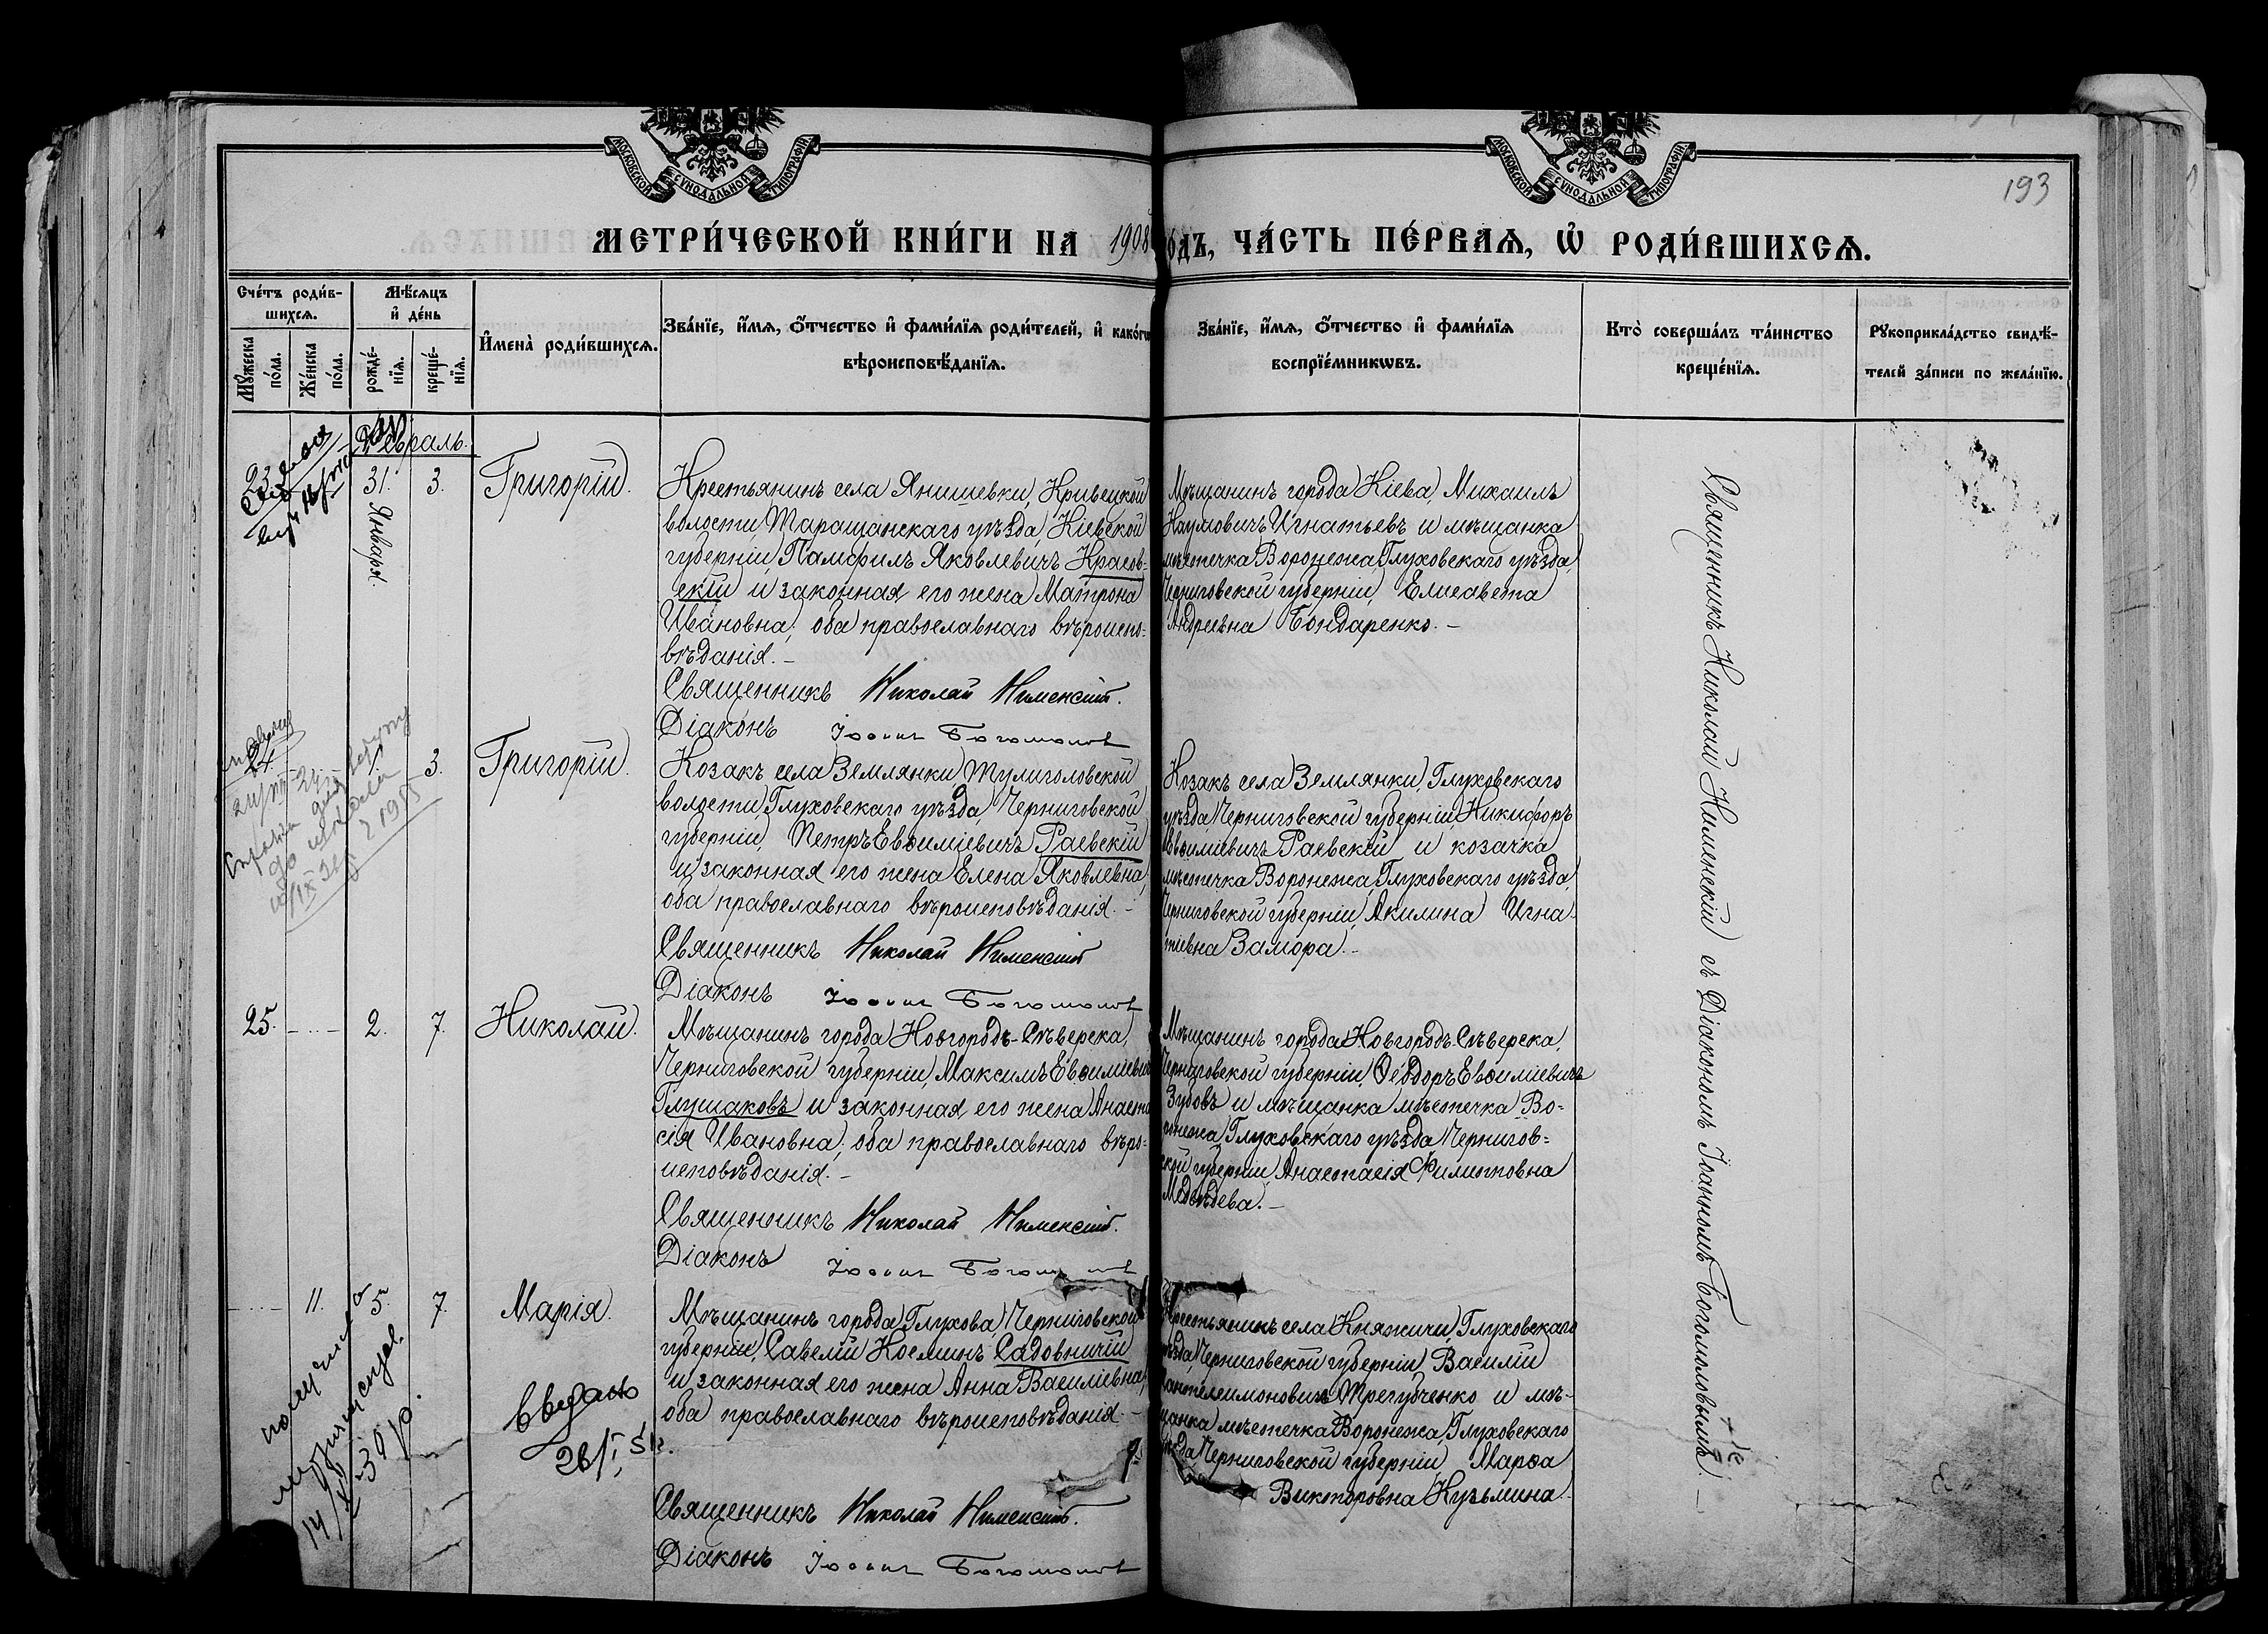 МОСКОВСКОЙ СУНОДАЛЬНОЙ ТИПОГРАФІИ
МОСКОВСКОЙ СУНОДАЛЬНОЙ ТИПОГРАФІИ
193
МЕТРИ́ЧЕСКОЙ КНИ́ГИ НА 1908
одъ, ЧА́СТЬ ПЕ́РВАѦ, Ѡ҆ РОДИ́ВШИХСѦ.
Сче́тъ роди́в-
шихсѧ.
Мѣ́сѧцъ
и҆ де́нь
Мꙋ́жеска
по́ла.
Же́нска
по́ла.
рожде́-
нїѧ.
креще́-
нїѧ.
И҆мена̀ роди́вшихсѧ.
Зва́нїе, и҆́мѧ, ѻ҆́тчество и҆ фами́лїѧ роди́телей, и҆ како́гѡ
вѣроисповѣ́данїѧ.
Зва́нїе, и҆́мѧ, ѻ҆́тчество и҆ фами́лїѧ
воспрїе́мникѡвъ.
Кто̀ соверша́лъ та́инство
креще́нїѧ.
Рꙋкоприкла́дство свидѣ́-
телей за́писи по жела́нїю.
Февраль.
23.
31.
Января.
3.
Григорій.
Крестьянинъ села Янишевки, Кривецкой
волости, Таращанскаго уѣзда, Кіевской
губерніи, Памфилъ Яковлевичъ Красов-
скій и законная его жена Матрона
Ивановна, оба православнаго вѣроиспо-
вѣданія. –
Священникъ Николай Нименскій.
Діаконъ Іоаннъ Богомоловъ
Мѣщанинъ города Кіева, Михаилъ
Наумовичъ Игнатьевъ и мѣщанка
мѣстечка Воронежа, Глуховскаго уѣзда,
Черниговской губерніи, Елисавета
Андреевна Бондаренко. –
24.
1.
3.
Григорій.
Козакъ села Землянки, Тулиголовской
волости, Глуховскаго уѣзда, Черниговской
губерніи, Петръ Евѳиміевичъ Раевскій
и законная его жена Елена Яковлевна,
оба православнаго вѣроисповѣданія. –
Священникъ Николай Нименскій
Діаконъ Іоаннъ Богомоловъ
Козакъ села Землянки, Глуховскаго
уѣзда, Черниговской губерніи, Никифоръ
Евѳиміевичъ Раевскій и козачка
мѣстечка Воронежа, Глуховскаго уѣзда,
Черниговской губерніи, Акилина Игна-
тіевна Замора. –
25.
2.
7.
Николай.
Мѣщанинъ города Новгородъ-Сѣверска,
Черниговской губерніи, Максимъ Евѳиміевичъ
Глушаковъ и законная его жена Анаста-
сія Ивановна, оба православнаго вѣро-
исповѣданія. –
Священникъ Николай Нименскій.
Діаконъ Іоаннъ Богомоловъ
Мѣщанинъ города Новгородъ-Сѣверска,
Черниговской губерніи, Ѳеодоръ Евѳиміевичъ
Зубовъ и мѣщанка мѣстечка Во-
ронежа, Глуховскаго уѣзда, Чернигов-
ской губерніи, Анастасія Филипповна
Медвѣдева. –
11.
5.
7.
Марія.
Мѣщанинъ города Глухова, Черниговской
губерніи, Савелій Косминъ Садовничій
и законная его жена Анна Василіевна,
оба православнаго вѣроисповѣданія. –
Священникъ Николай Нименскій.
Діаконъ Іоаннъ Богомоловъ
Крестьянинъ села Княжичи, Глуховскаго
уѣзда, Черниговской губерніи, Василій
Пантелеимоновичъ Трегубченко и мѣ-
щанка мѣстечка Воронежа, Глуховскаго
уѣзда, Черниговской губерніи, Марѳа
Викторовна Кузьмина.
Священникъ Николай Нименскій съ Діакономъ Іоанномъ Богомоловымъ. –